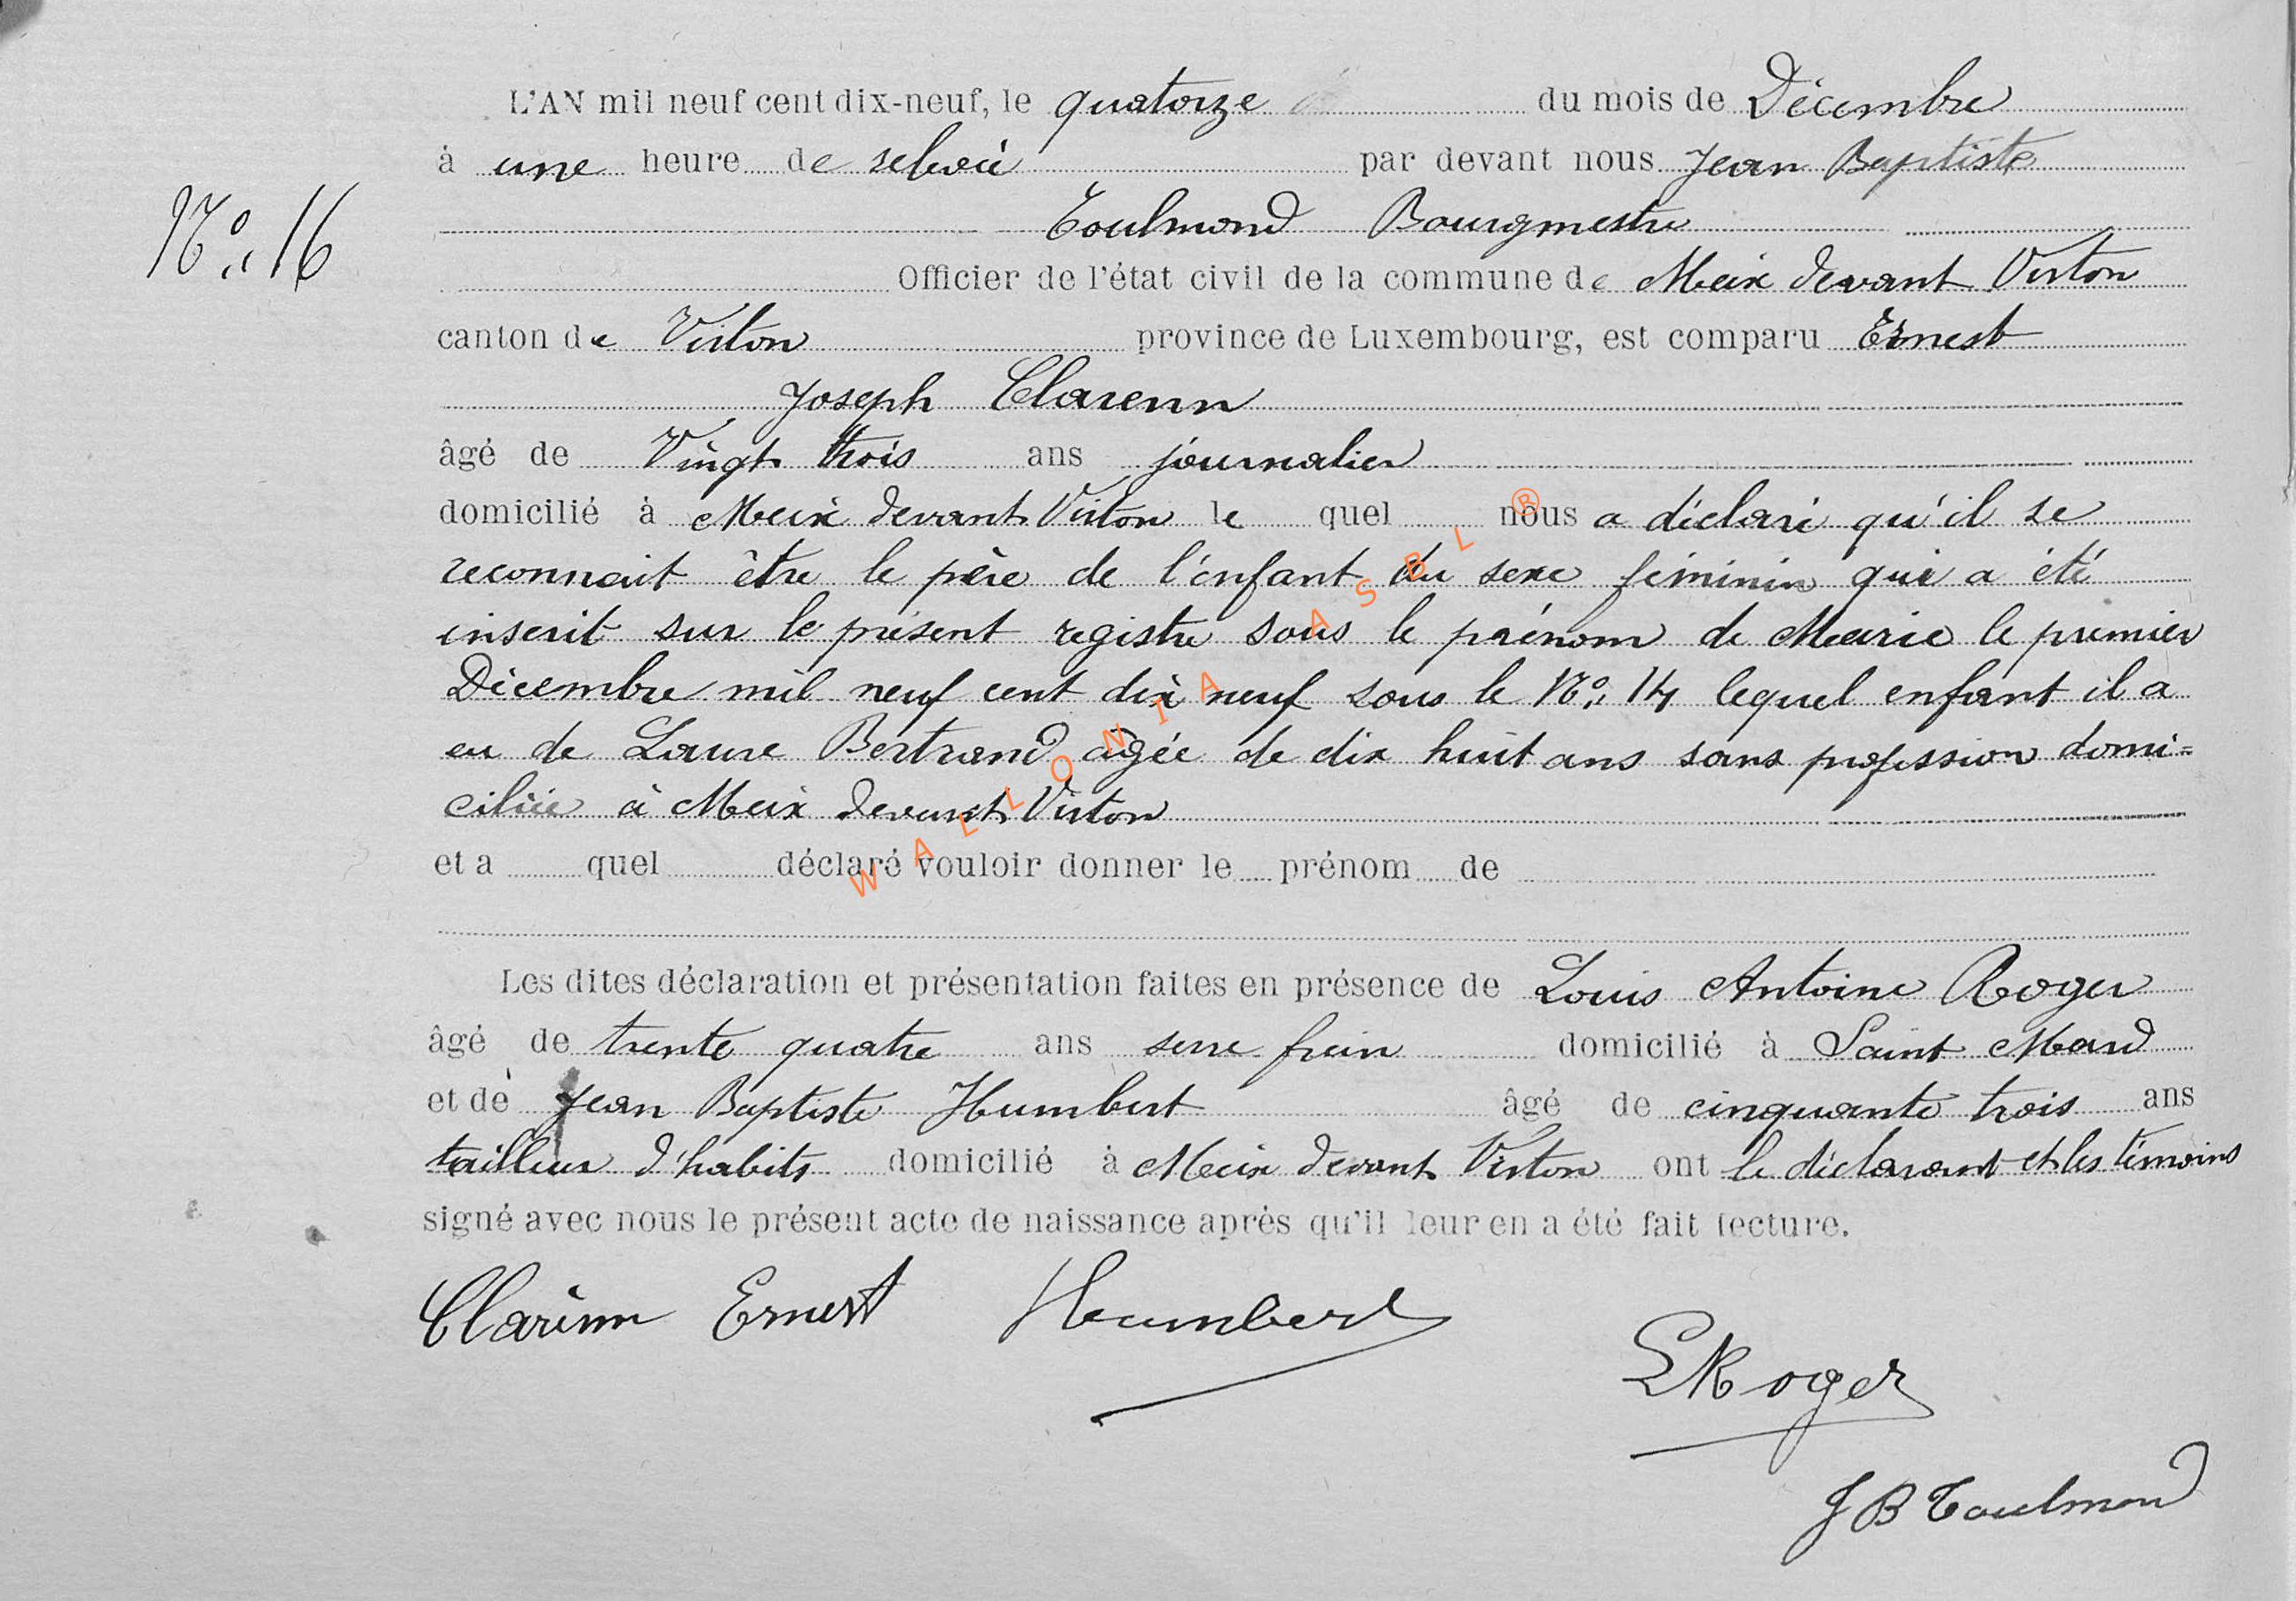 L'AN mil neuf cent dix-neuf, le quatorze du mois de Décembre
à une heure de relevée par devant nous Jean Baptiste
Toulmond Bourgmestre
N° 16
Officier de l'état civil de la commune de Meix devant Virton
canton de Virton province de Luxembourg, est comparu Ernest
Joseph Clarenn
âgé de Vingt trois ans journalier
domicilié à Meix devant Virton le quel nous a déclaré qu'il se
reconnait être le père de l'enfant du sexe féminin qui a été
inscrit sur le présent registre sous le prénom de Marie le premier
Décembre mil neuf cent dix neuf sous le N° 14 lequel enfant il a
eu de Laure Bertrand âgée de dix huit ans sans profession domi=
ciliée à Meix devant Virton
et a quel déclaré vouloir donner le prénom de
Les dites déclaration et présentation faites en présence de Louis Antoine Roger
âgé de trente quatre ans serre frein domicilié à Saint Mard
et de Jean Baptiste Humbert âgé de cinquante trois ans
tailleur d'habits domicilié à Meix devant Virton ont le déclarant et les témoins
signé avec nous le présent acte de naissance après qu'il leur en a été fait lecture.
Clarenn Ernest Humbert
LRoger
JB Toulmond
WALLONIA ASBL ®